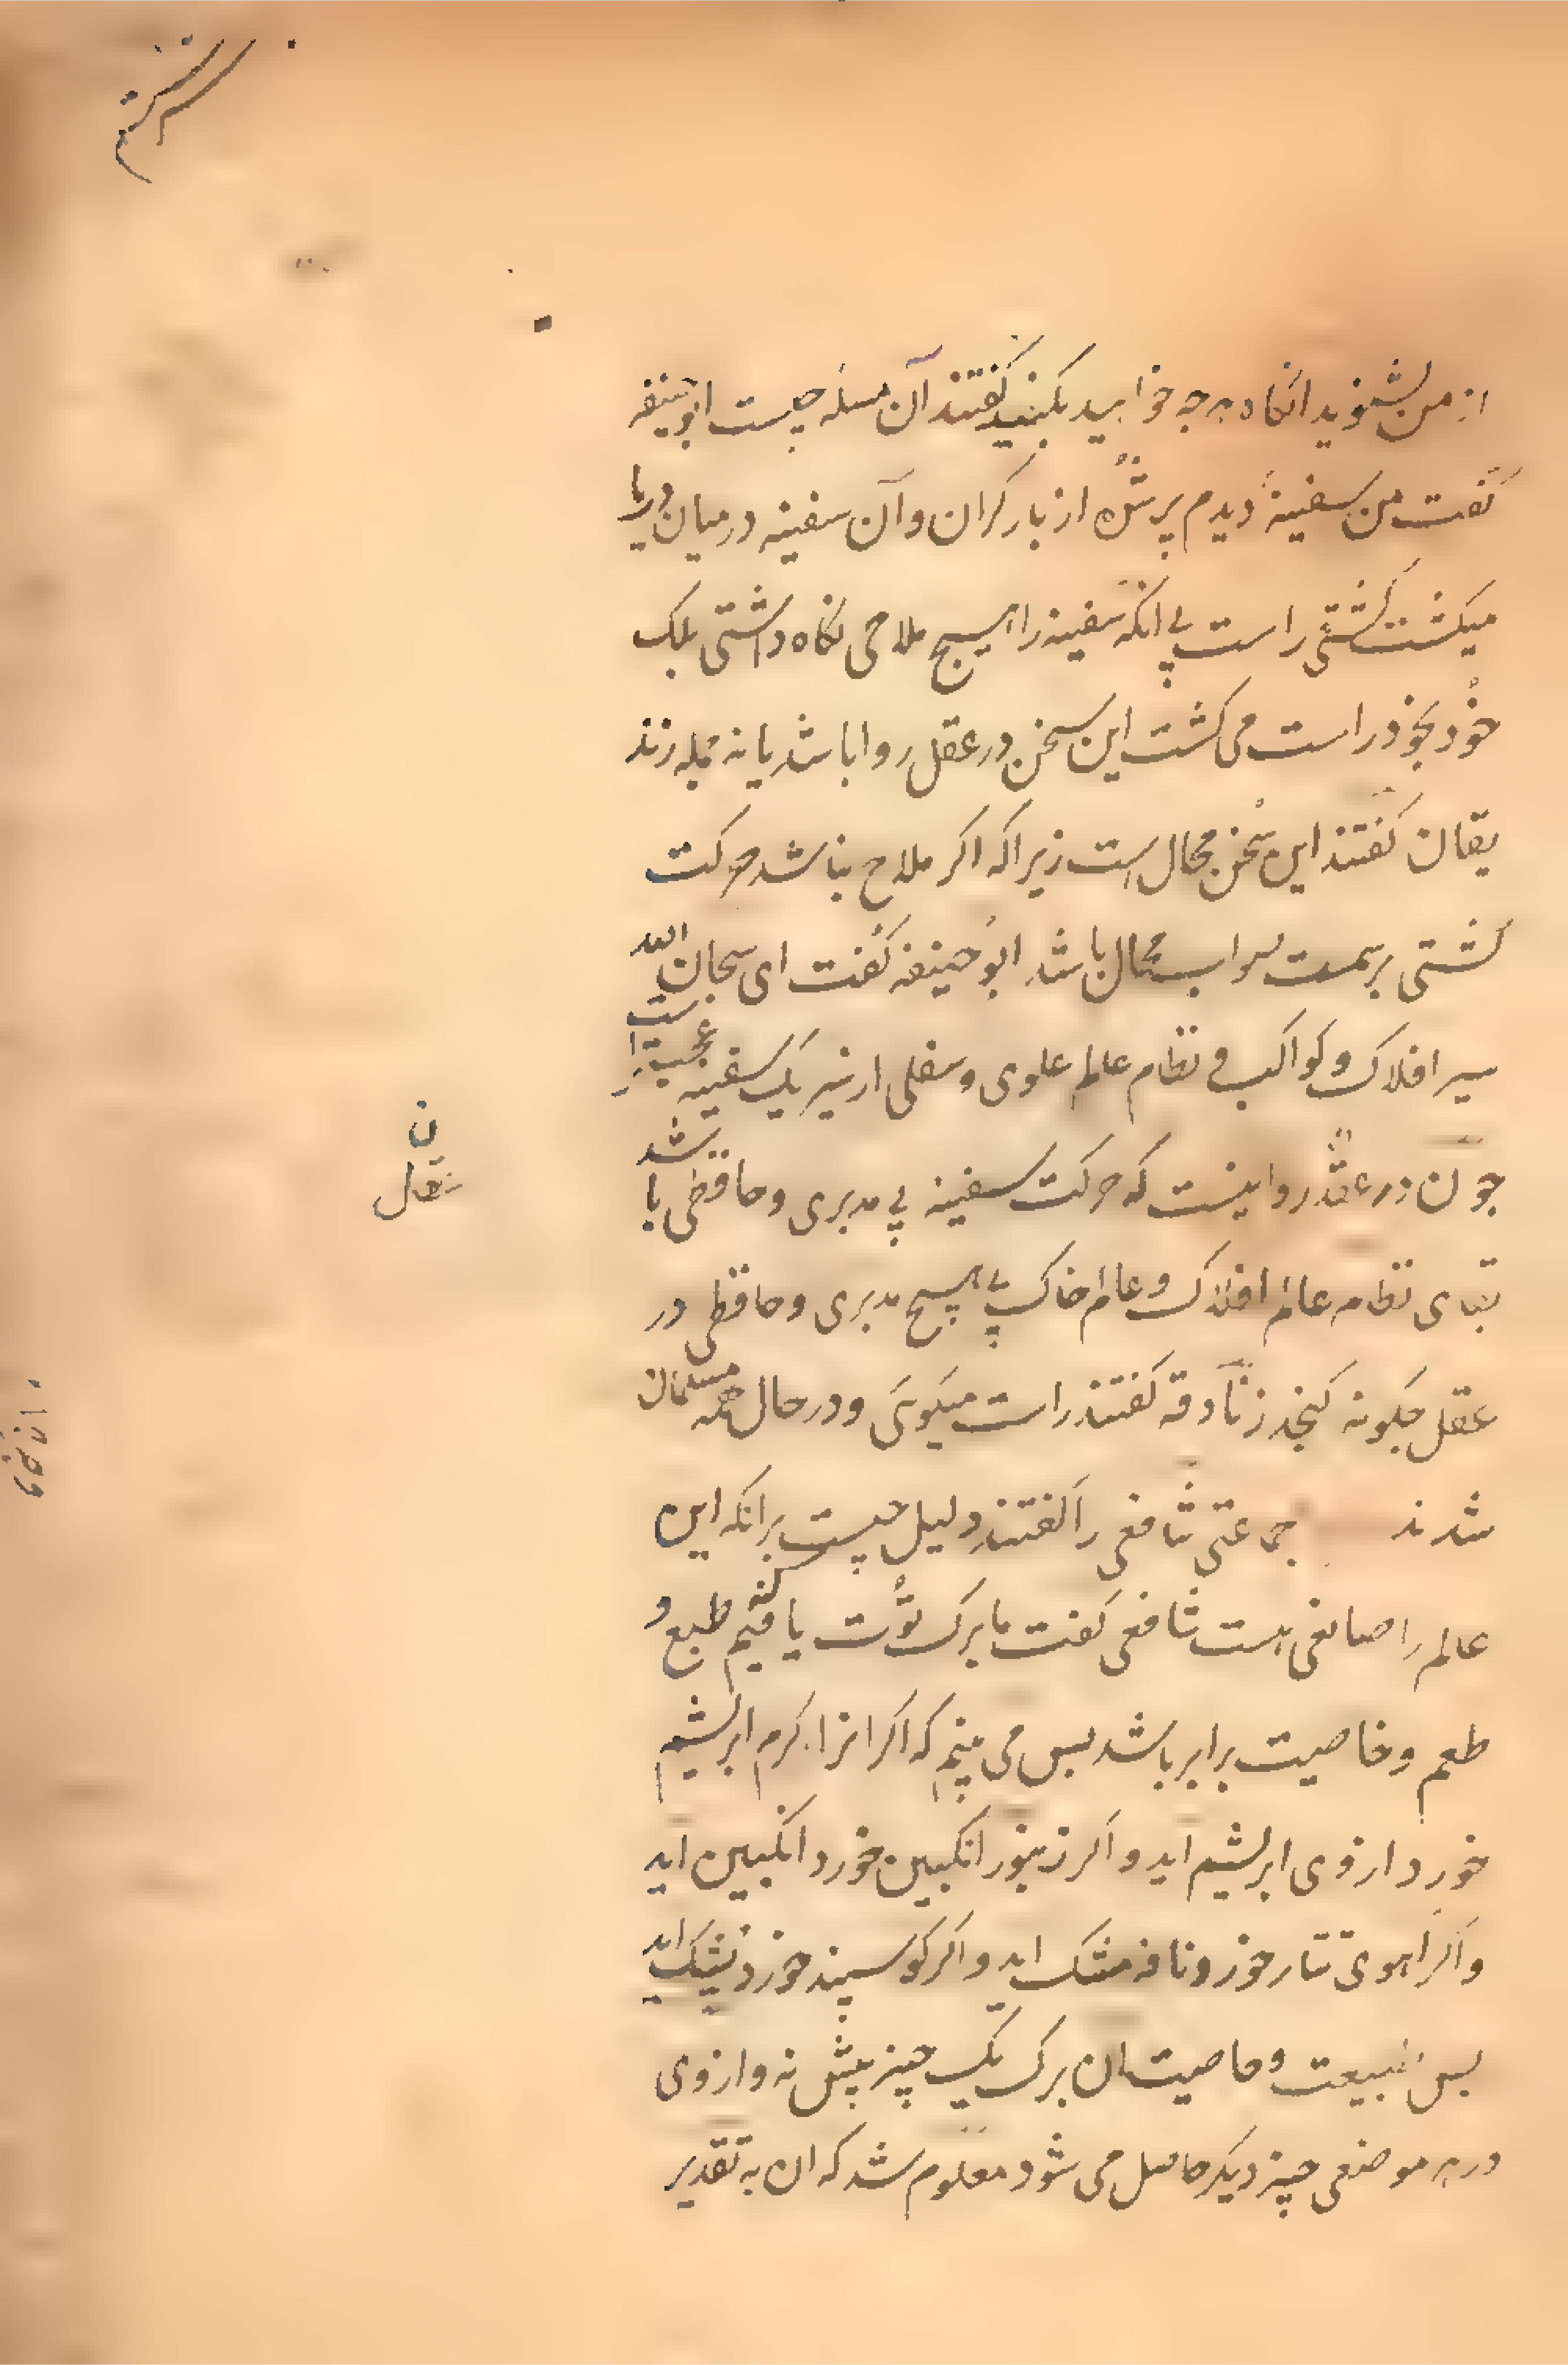 از من بشنوید انکاه هرچه خواهید بکنید کفتند آن مسله چیست ابو حنیفه
کفت من سفینۀ دیدم پر شُده از بار کران و آن سفینه در میان دریا
میکشت کشتنی راست بی انکه سفینه را هیچ ملاحی نکاه داشتی بلک
خوذ بخوذ راست می کشت این سخن در عقل روا باشد یا نه جمله زند
یقان کفتند این سُخن محال است زیرا که اکر ملاح نباشد حرکت
کشتی بر سمت صواب محال باشد ابوُ حنیفه کفت ای سبحان الله
سیر افلاک و کواکب و نظام عالم علوی و سفلی از سیر یک سفینه عجیبتر است
جون در عقل روا نیست که حرکت سفینه بی مدبری و حافظی باشد
بقای نظام عالم افلاک و عالم خاک بی هیچ مدبری و حافظی در
عقل جکونه کنجد زنادقه کفتند راست میکوئی و در حال همه مسلمان
شدند جماعتی شافعی را کفتند دلیل چیست بر انکه این
عالم را صانعی هست شافعی کفت ما برک توُت یافتیم کش طبع و
طعم و خاصیت برابر باشد بس می بینم که اکر انرا کرم ابریشم
خورد از وی ابریشم اید و اکر زنبور انکبین خورد انکبین اید
و اکر اهوی تتار خورد نافه مشک اید و اکر کوسپند خورد پشک اید
بس طبیعت و خاصیت ان برک یک چیز بیش نه و از وی
در هر موضعی چیز دیکر حاصل می شود معلوم شد که ان به تقدیر